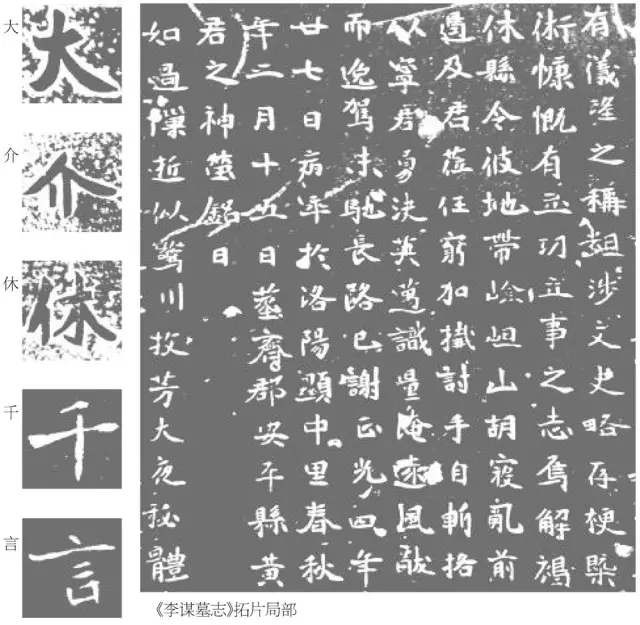 大
大
介
介
休
休
千
千
言
言
有儀隆之稱涉文史略存梗槩
術慷慨有立功立事之志焉解褐
休縣令彼地帶嶮岨山胡寇亂前
邊及君莅任窮加撿討手自斬挌
以寧君勇決英邁識量淹遠風猷
而逸駕未馳長路已謝正光四年
廿七日病卒於洛陽顯中里春秋
年二月十五日葬齊郡安平縣黃
君之神銘曰
如過隟近似驚川投芳大夜秘體
《李谋墓志》拓片局部